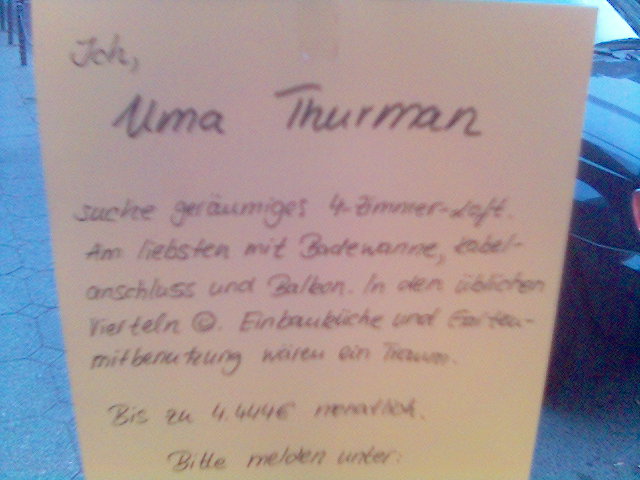 Ich,
Uma Thurman
suche geräumiges 4-Zimmer-Loft.
Am liebsten mit Badewanne, Kabel-
anschluss und Balkon. In den üblichen
Vierteln ☺. Einbauküche und Garten-
mitbenutzung wären ein Traum.
Bis zu 4.444€ monatlich.
Bitte melden unter: